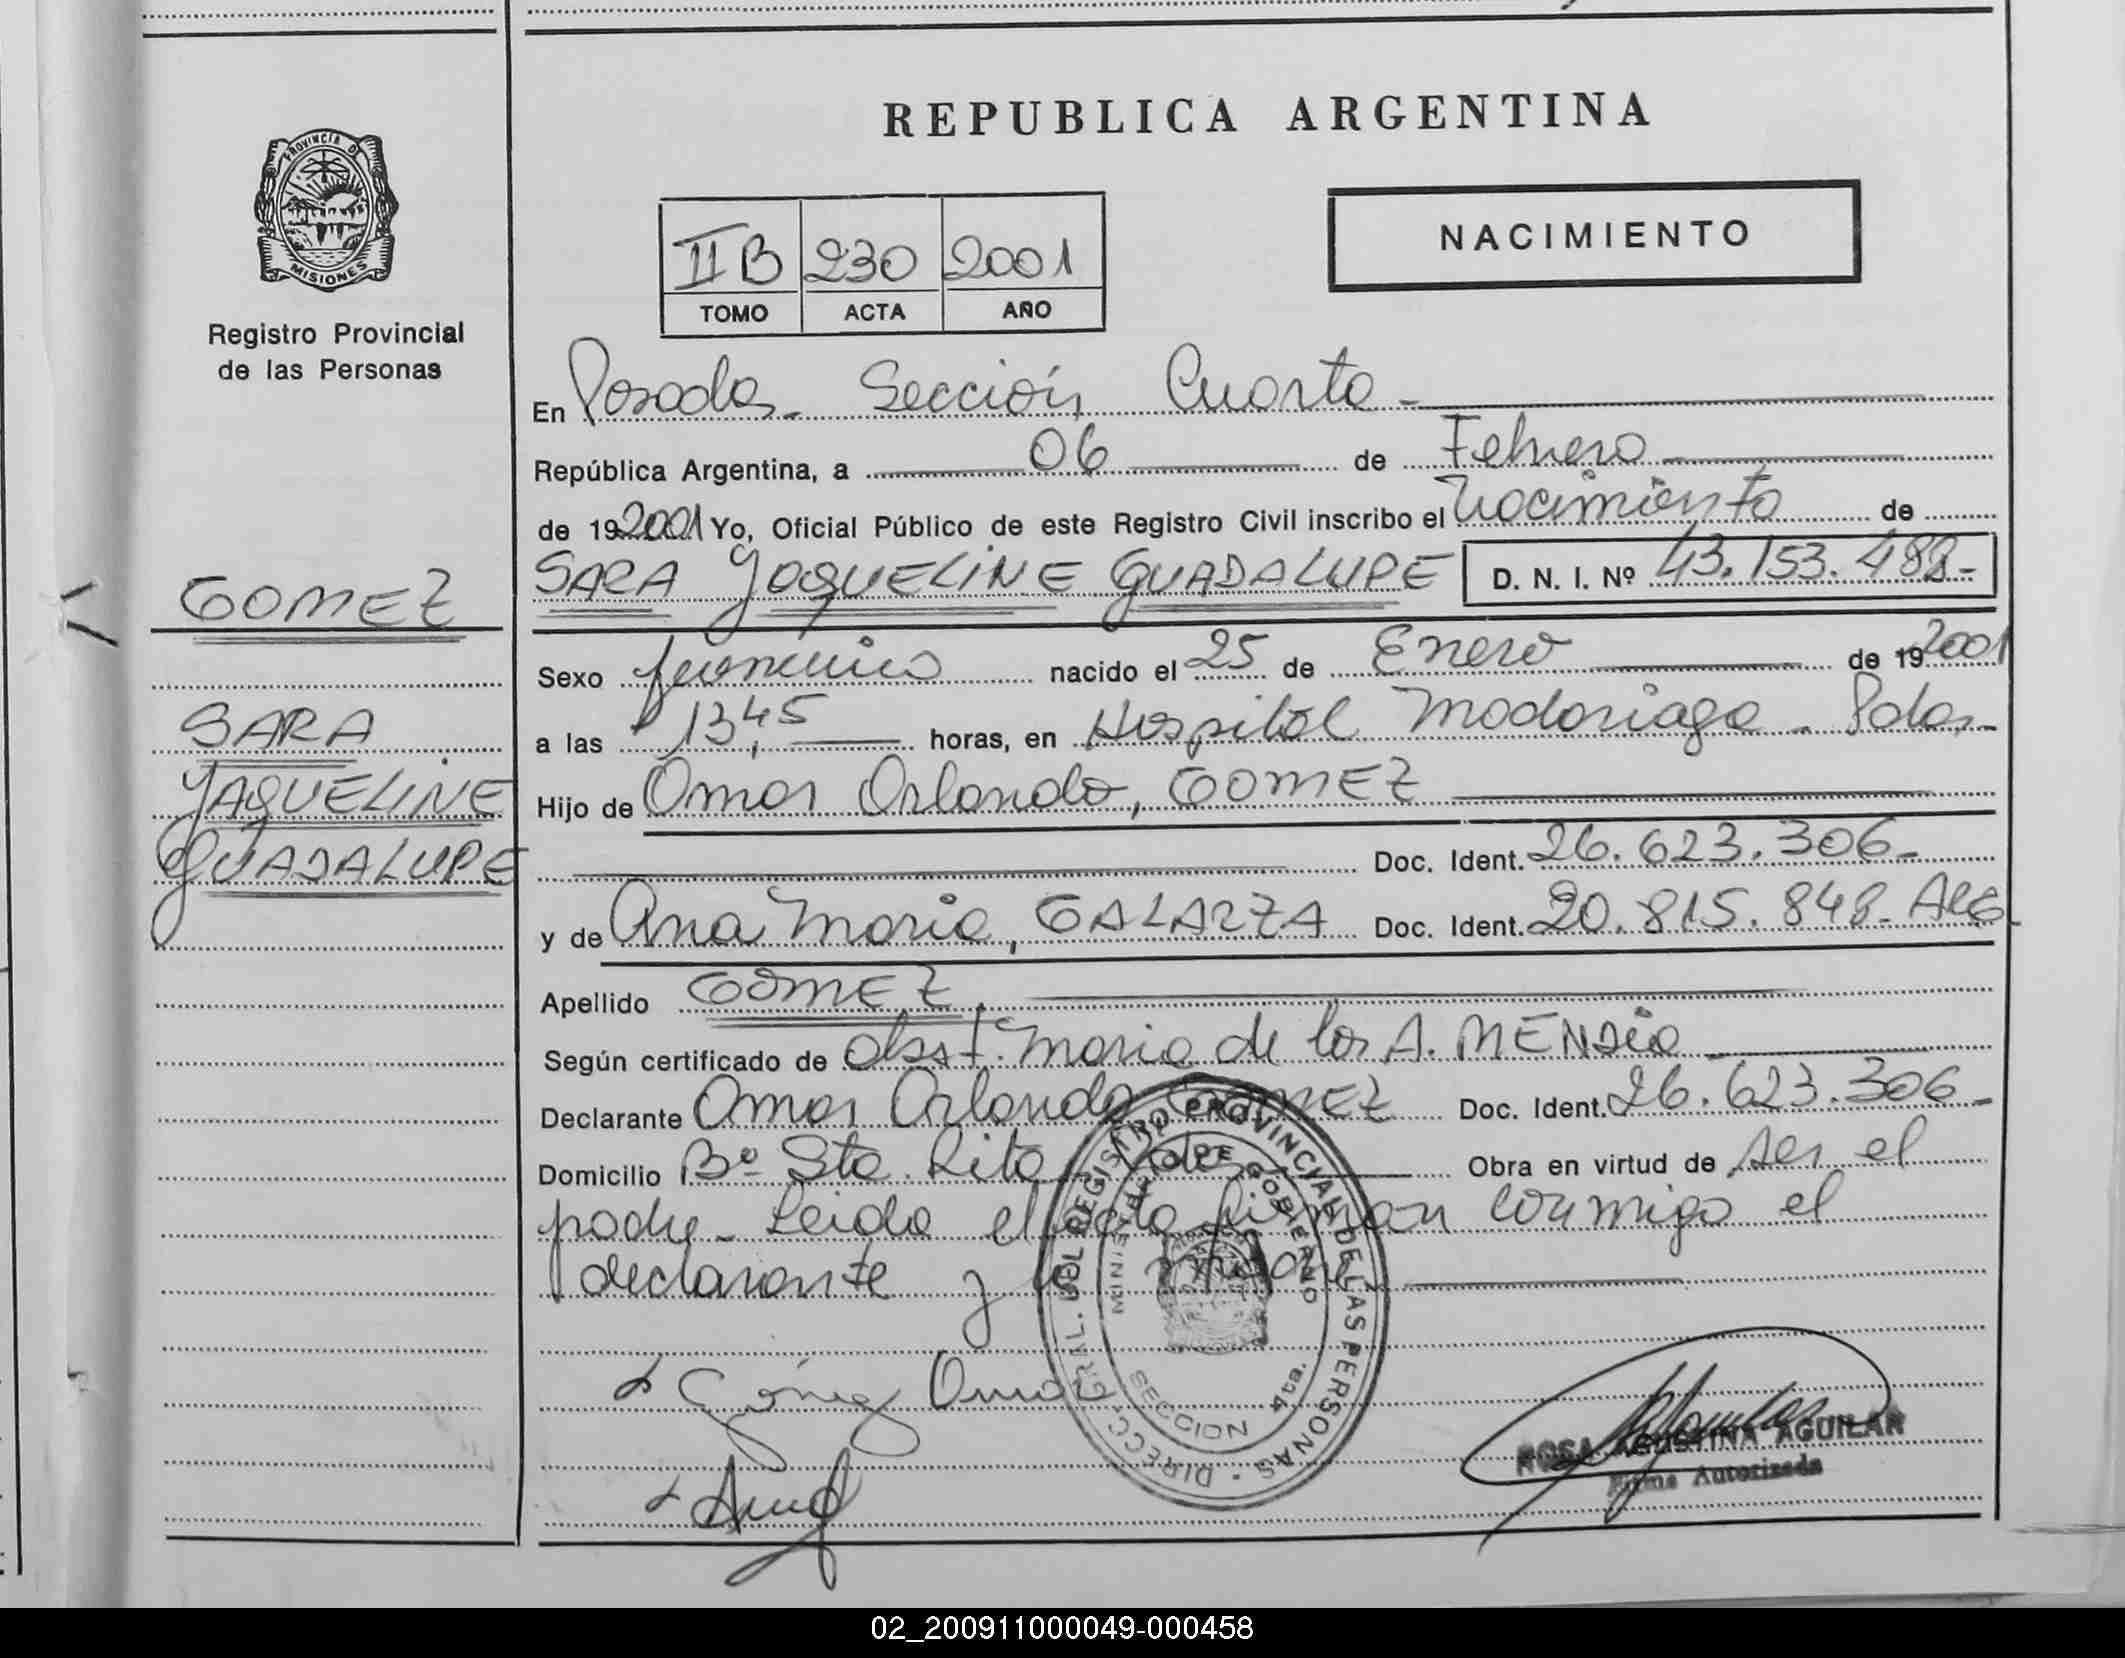 REPUBLICA ARGENTINA
PROVINCIA DE
MISIONES
Registro Provincial
de las Personas
II B 230 2001
TOMO ACTA AÑO
NACIMIENTO
En Posadas - Sección Cuarta -
República Argentina, a 06 de Febrero
de 192001 Yo, Oficial Público de este Registro Civil inscribo el Nacimiento de
SARA YAQUELINE GUADALUPE D. N. I. Nº 43.153.488-
GOMEZ
SARA
YAQUELINE
GUADALUPE
Sexo femenino nacido el 25 de Enero de 192001
a las 13,45 horas, en Hospital Madariaga - Pdas -
Hijo de Omar Orlando, GOMEZ
Doc. Ident. 26.623.306-
y de Ana Maria, GALARZA Doc. Ident. 20.815.848- ARG
Apellido GOMEZ.
Según certificado de obst. Maria de los A.
Declarante Omar Orlando GOMEZ Doc. Ident. 26.623.306-
Domicilio Bº Sta. Rita - Pdas Obra en virtud de ser el
padre - Leida el acta firman conmigo el
declarante y la madre
Gómez Omar
DIRECC. GRAL. DEL REGISTRO PROVINCIAL DE LAS PERSONAS
MINISTERIO DE GOBIERNO
SECCION 4ta.
ROSA AGUSTINA AGUILAR
Firma Autorizada
02_200911000049-000458